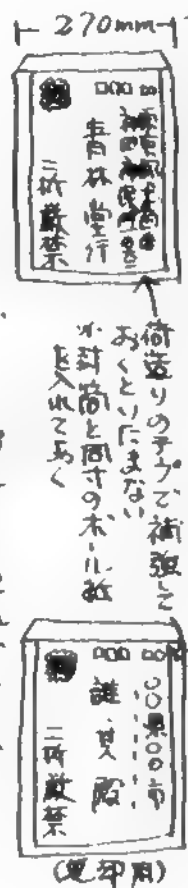 270mm
青林堂行
二折厳禁
荷造りのテープで補強して
おくといたまない
※封筒と同寸のボール紙
を入れておく
〇〇県〇〇市
誰某殿
二折厳禁
(返却用)